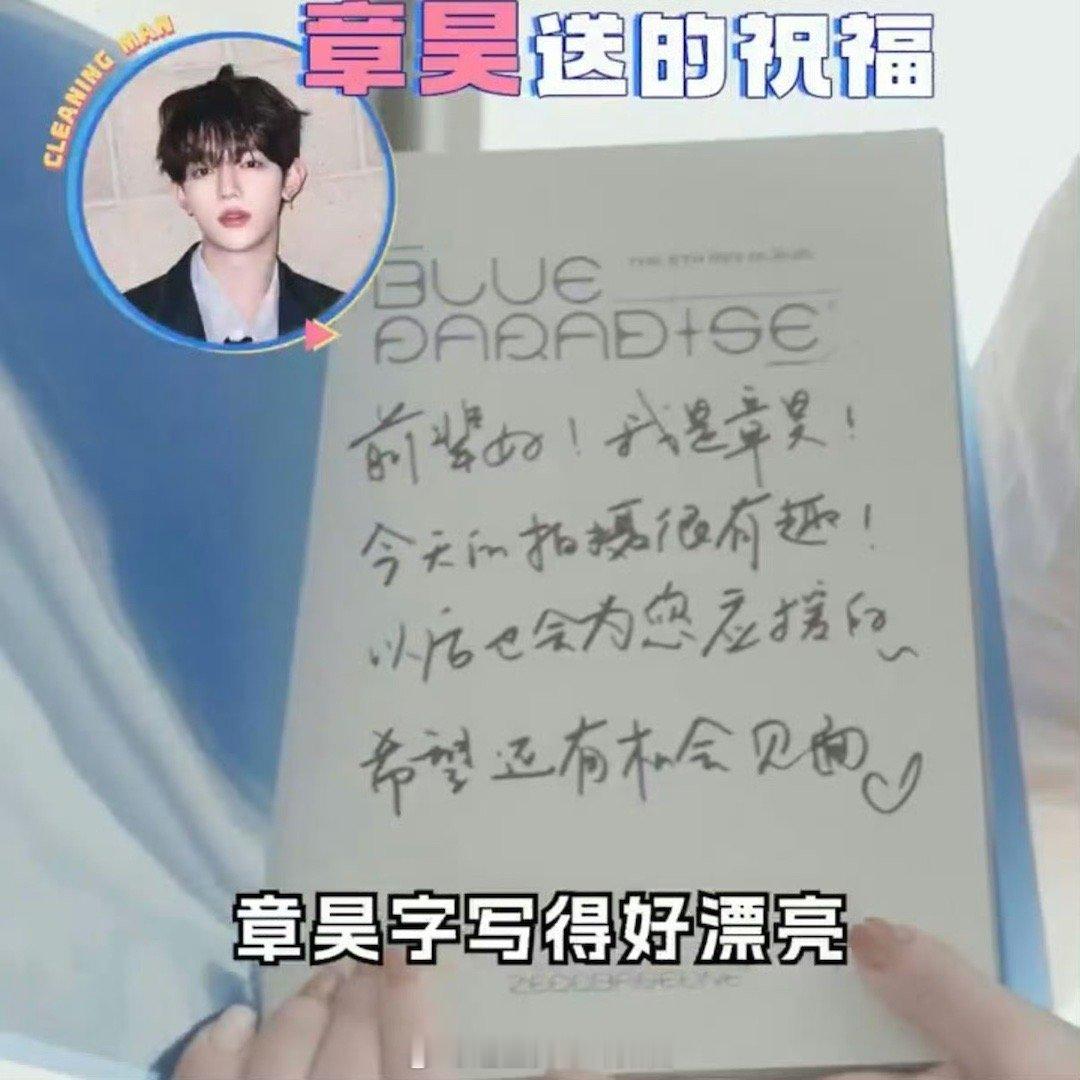 CLEANING MAN
章昊送的祝福
BLUE
THE 5TH MINI ALBUM
PARADISE
前辈好！我是章昊！
今天的拍摄很有趣！
以后也会为您应援的~
希望还有机会见面♡
章昊字写得好漂亮
ZEROBASEONE